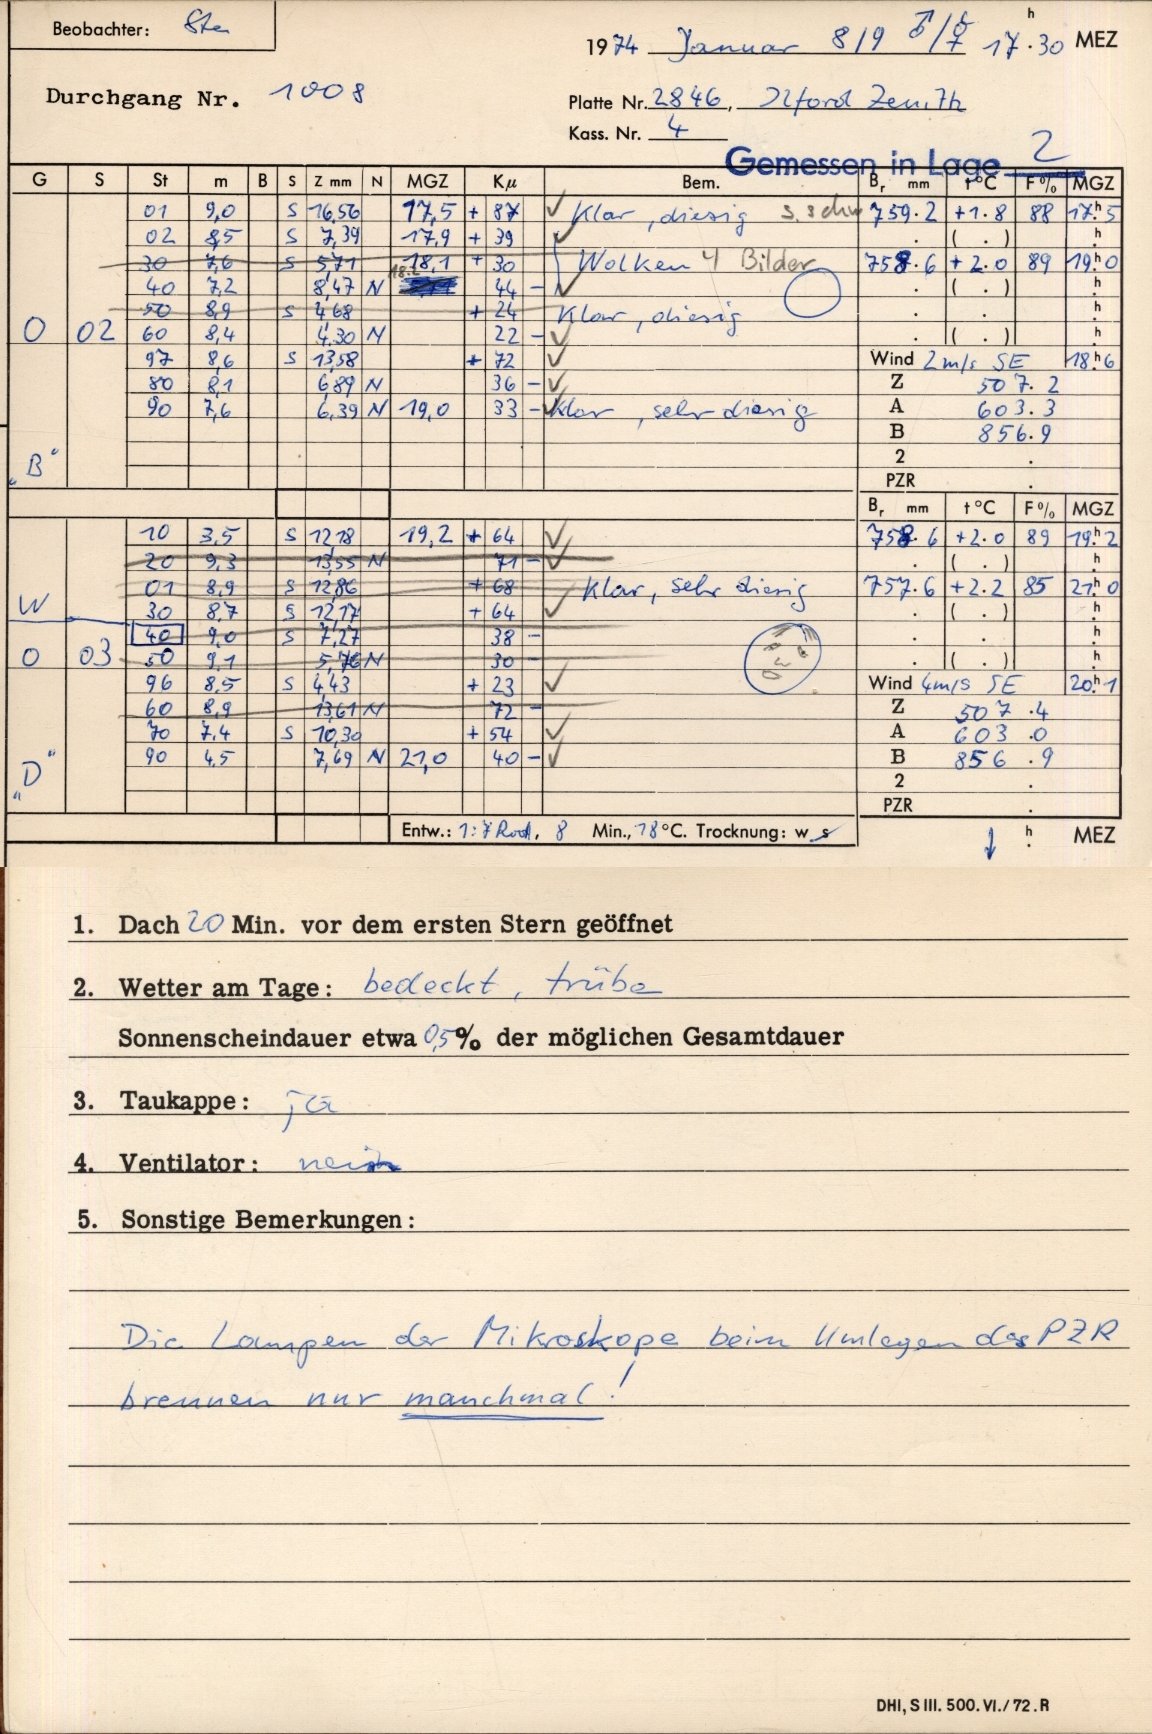 Beobachter: Ste
1974 Januar 8/9 ♂/☿ 17h.30 MEZ
Durchgang Nr. 1008
Platte Nr. 2846, Ilford Zenith
Kass. Nr. 4
Gemessen in Lage 2
G S St m B S Z mm N MGZ Kμ Bem. Br mm t°C F% MGZ
01 9,0 S 16,56 17,5 + 87 ✓ Klar, diesig s. schw 759.2 +1.8 88 17h5
02 8,5 S 7,39 17,9 + 39 ✓ . ( . ) h
30 7,6 S 5,71 18,1 + 30 Wolken 4 Bilder 758.6 +2.0 89 19h0
40 7,2 8,47 N 18.2 44 - ✓ . ( . ) h
50 8,9 S 4,68 + 24 Klar, diesig . . h
O 02 60 8,4 4,30 N 22 - ✓ . ( . ) h
97 8,6 S 13,58 + 72 ✓ Wind 2m/s SE 18h6
80 8,1 6,89 N 36 - ✓ Z 507.2
90 7,6 6,39 N 19,0 33 - ✓ Klar, sehr diesig A 603.3
B 856.9
"B" 2 .
PZR .
Br mm t°C F% MGZ
10 3,5 S 12,18 19,2 + 64 ✓ 758.6 +2.0 89 19h2
20 9,3 13,55 N 71 - ✓ . ( . ) h
01 8,9 S 12,86 + 68 Klar, sehr diesig 757.6 +2.2 85 21h0
W 30 8,7 S 12,17 + 64 ✓ . ( . ) h
40 9,0 S 7,27 38 - . . h
O 03 50 9,1 5,76 N 30 - . ( . ) h
96 8,5 S 4,43 + 23 ✓ Wind 4m/s SE 20h1
60 8,9 13,61 N 72 - Z 507.4
70 7,4 S 10,30 + 54 ✓ A 603.0
"D" 90 4,5 7,69 N 21,0 40 - ✓ B 856.9
2 .
PZR .
Entw.: 1:7 Rod, 8 Min., 18°C. Trocknung: w s ↓ h. MEZ
1. Dach 20 Min. vor dem ersten Stern geöffnet
2. Wetter am Tage: bedeckt, trübe
Sonnenscheindauer etwa 0,5% der möglichen Gesamtdauer
3. Taukappe: ja
4. Ventilator: nein
5. Sonstige Bemerkungen:
Die Lampen der Mikroskope beim Umlegen des PZR
brennen nur manchmal!
DHI, S III. 500. VI./72. R